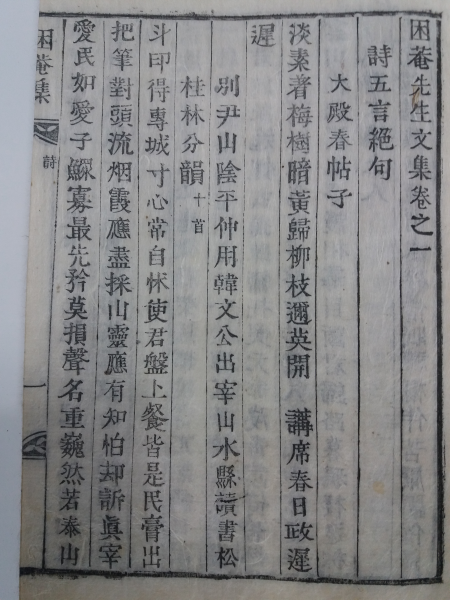 困菴先生文集卷之一
詩五言絶句
大殿春帖子
淡素著梅樹暗黃歸柳枝邇英開講席春日政遲
遲
別尹山陰平仲用韓文公出宰山水縣讀書松
桂林分韻十首
斗印得專城寸心常自怵使君盤上餐皆是民膏出
把筆對頭流烟霞應盡採山靈應有知怕却訴眞宰
愛民如愛子鰥寡最先矜莫損聲名重巍然若泰山
困菴集
詩
一